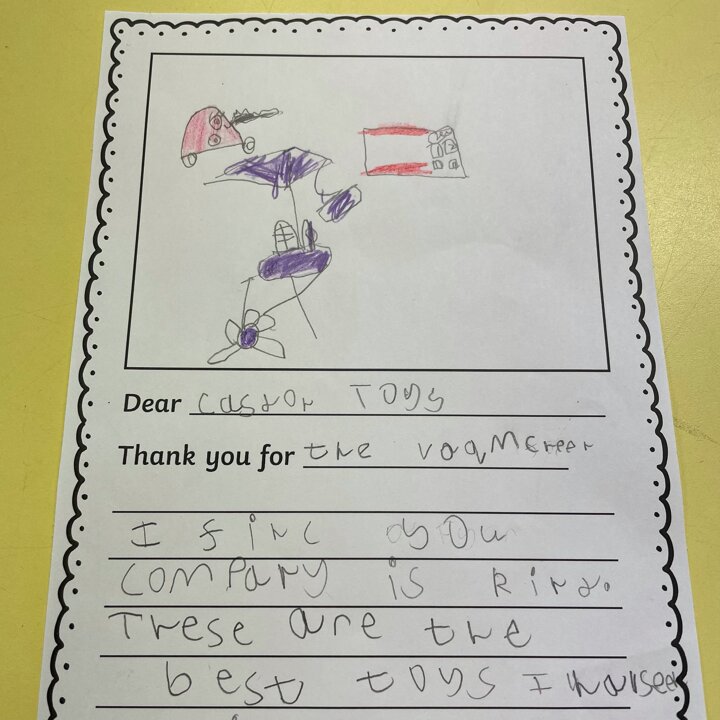 Dear Castor Toys
Thank you for the
I finc you
company is kind.
These are the
best toys I